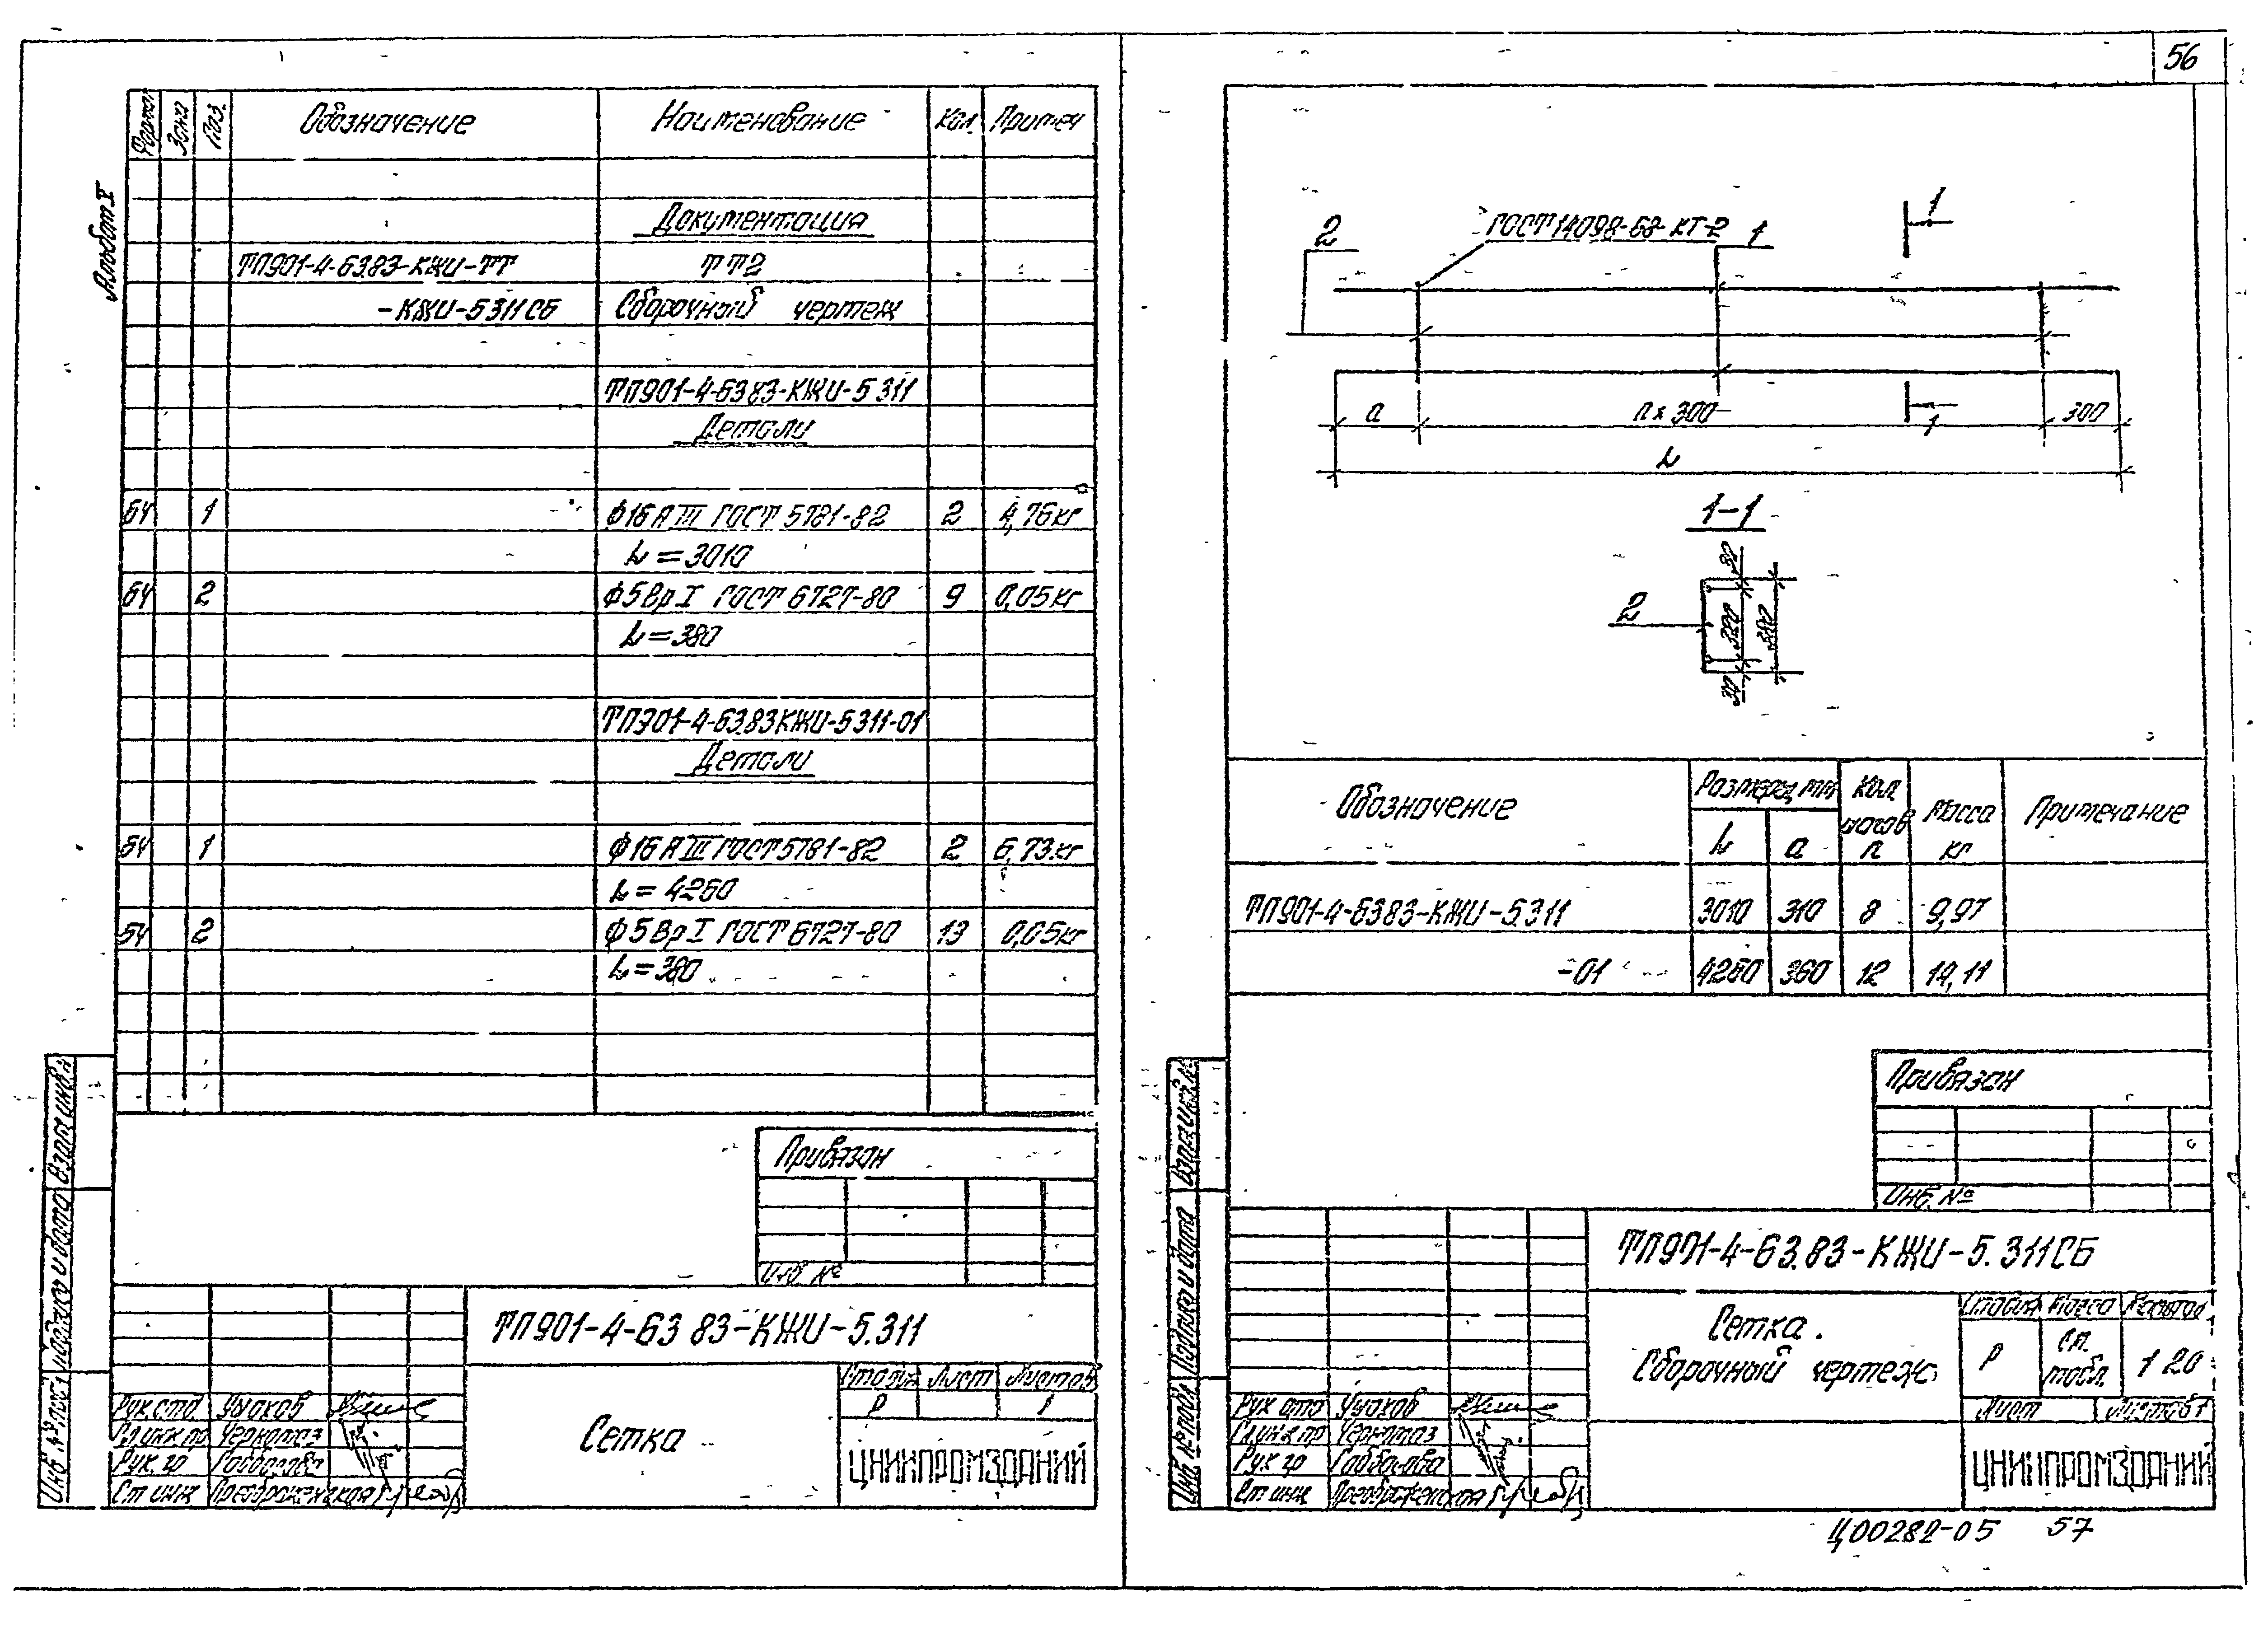 56
Альбом V
Формат Зона Поз. Обозначение Наименование Кол. Примеч
Документация
ТП901-4-63.83-КЖИ-ТТ ТТ2
-КЖИ-5.311СБ Сборочный чертеж
ТП901-4-63.83-КЖИ-5.311
Детали
БЧ 1 Ф16АIII ГОСТ 5781-82 2 4,76кг
L=3010
БЧ 2 Ф5ВрI ГОСТ 6727-80 9 0,05кг
L=380
ТП901-4-63.83КЖИ-5.311-01
Детали
БЧ 1 Ф16АIII ГОСТ 5781-82 2 6,73кг
L=4260
БЧ 2 Ф5ВрI ГОСТ 6727-80 13 0,05кг
L=380
Привязан
Инв. №
ТП901-4-63 83-КЖИ-5.311
Сетка
Стадия Лист Листов
Р 1
ЦНИИПРОМЗДАНИЙ
Рук.отд. Ушаков
Гл.инж.пр
Рук. гр
Ст инж Преображенская
Инв. № подл Подпись и дата Взам инв.№
2
ГОСТ 14098-68-КТ-2
1
1
а
n x 300
1
300
L
1-1
2
30
320
380
30
Обозначение Размеры, мм Кол. шагов n Масса кг Примечание
L а
ТП901-4-63.83-КЖИ-5.311 3010 310 8 9,97
-01 4260 360 12 14,11
Привязан
Инв. №
ТП901-4-63.83-КЖИ-5.311СБ
Сетка.
Сборочный чертеж
Стадия Масса Масштаб
Р см. табл. 1 20
Лист Листов 1
ЦНИИПРОМЗДАНИЙ
Рук отд Ушаков
Гл.инж пр
Рук гр
Ст инж Преображенская
Инв № подл Подпись и дата Взам инв.№
Ц00282-05 57